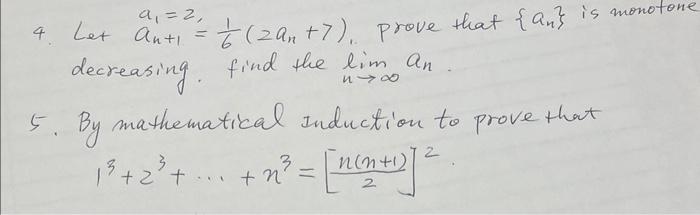 4. Let a₁ = 2, aₙ₊₁ = 1/6 (2aₙ + 7), prove that {aₙ} is monotone
decreasing. find the lim n→∞ aₙ.
5. By mathematical Induction to prove that
1³ + 2³ + ... + n³ = [n(n+1)/2]².